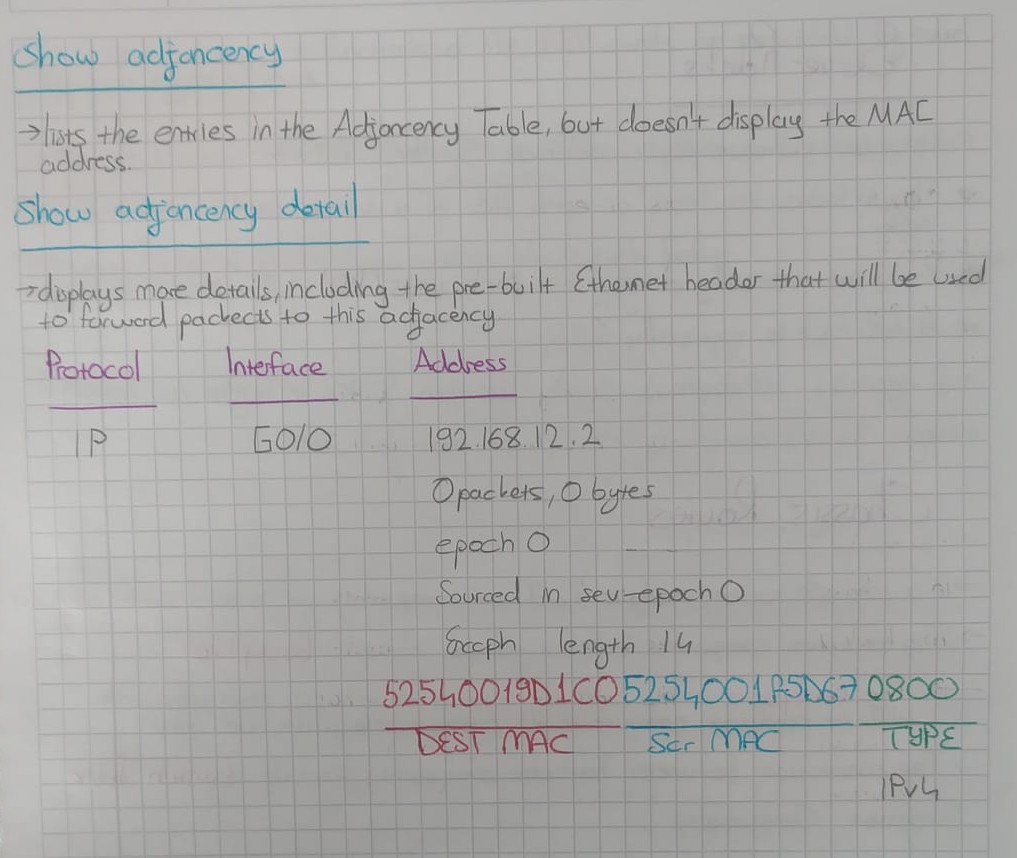 Show adjancency
→lists the entries in the Adjancency Table, but doesn't display the MAC
address.
Show adjancency detail
→displays more details, including the pre-built Ethernet header that will be used
to forward packects to this adjacency
Protocol Interface Address
IP G0/0 192.168.12.2
0 packets, 0 bytes
epoch 0
Sourced in sev-epoch 0
length 14
52540019D1C0 5254001A5D67 0800
DEST MAC Scr MAC TYPE
IPv4